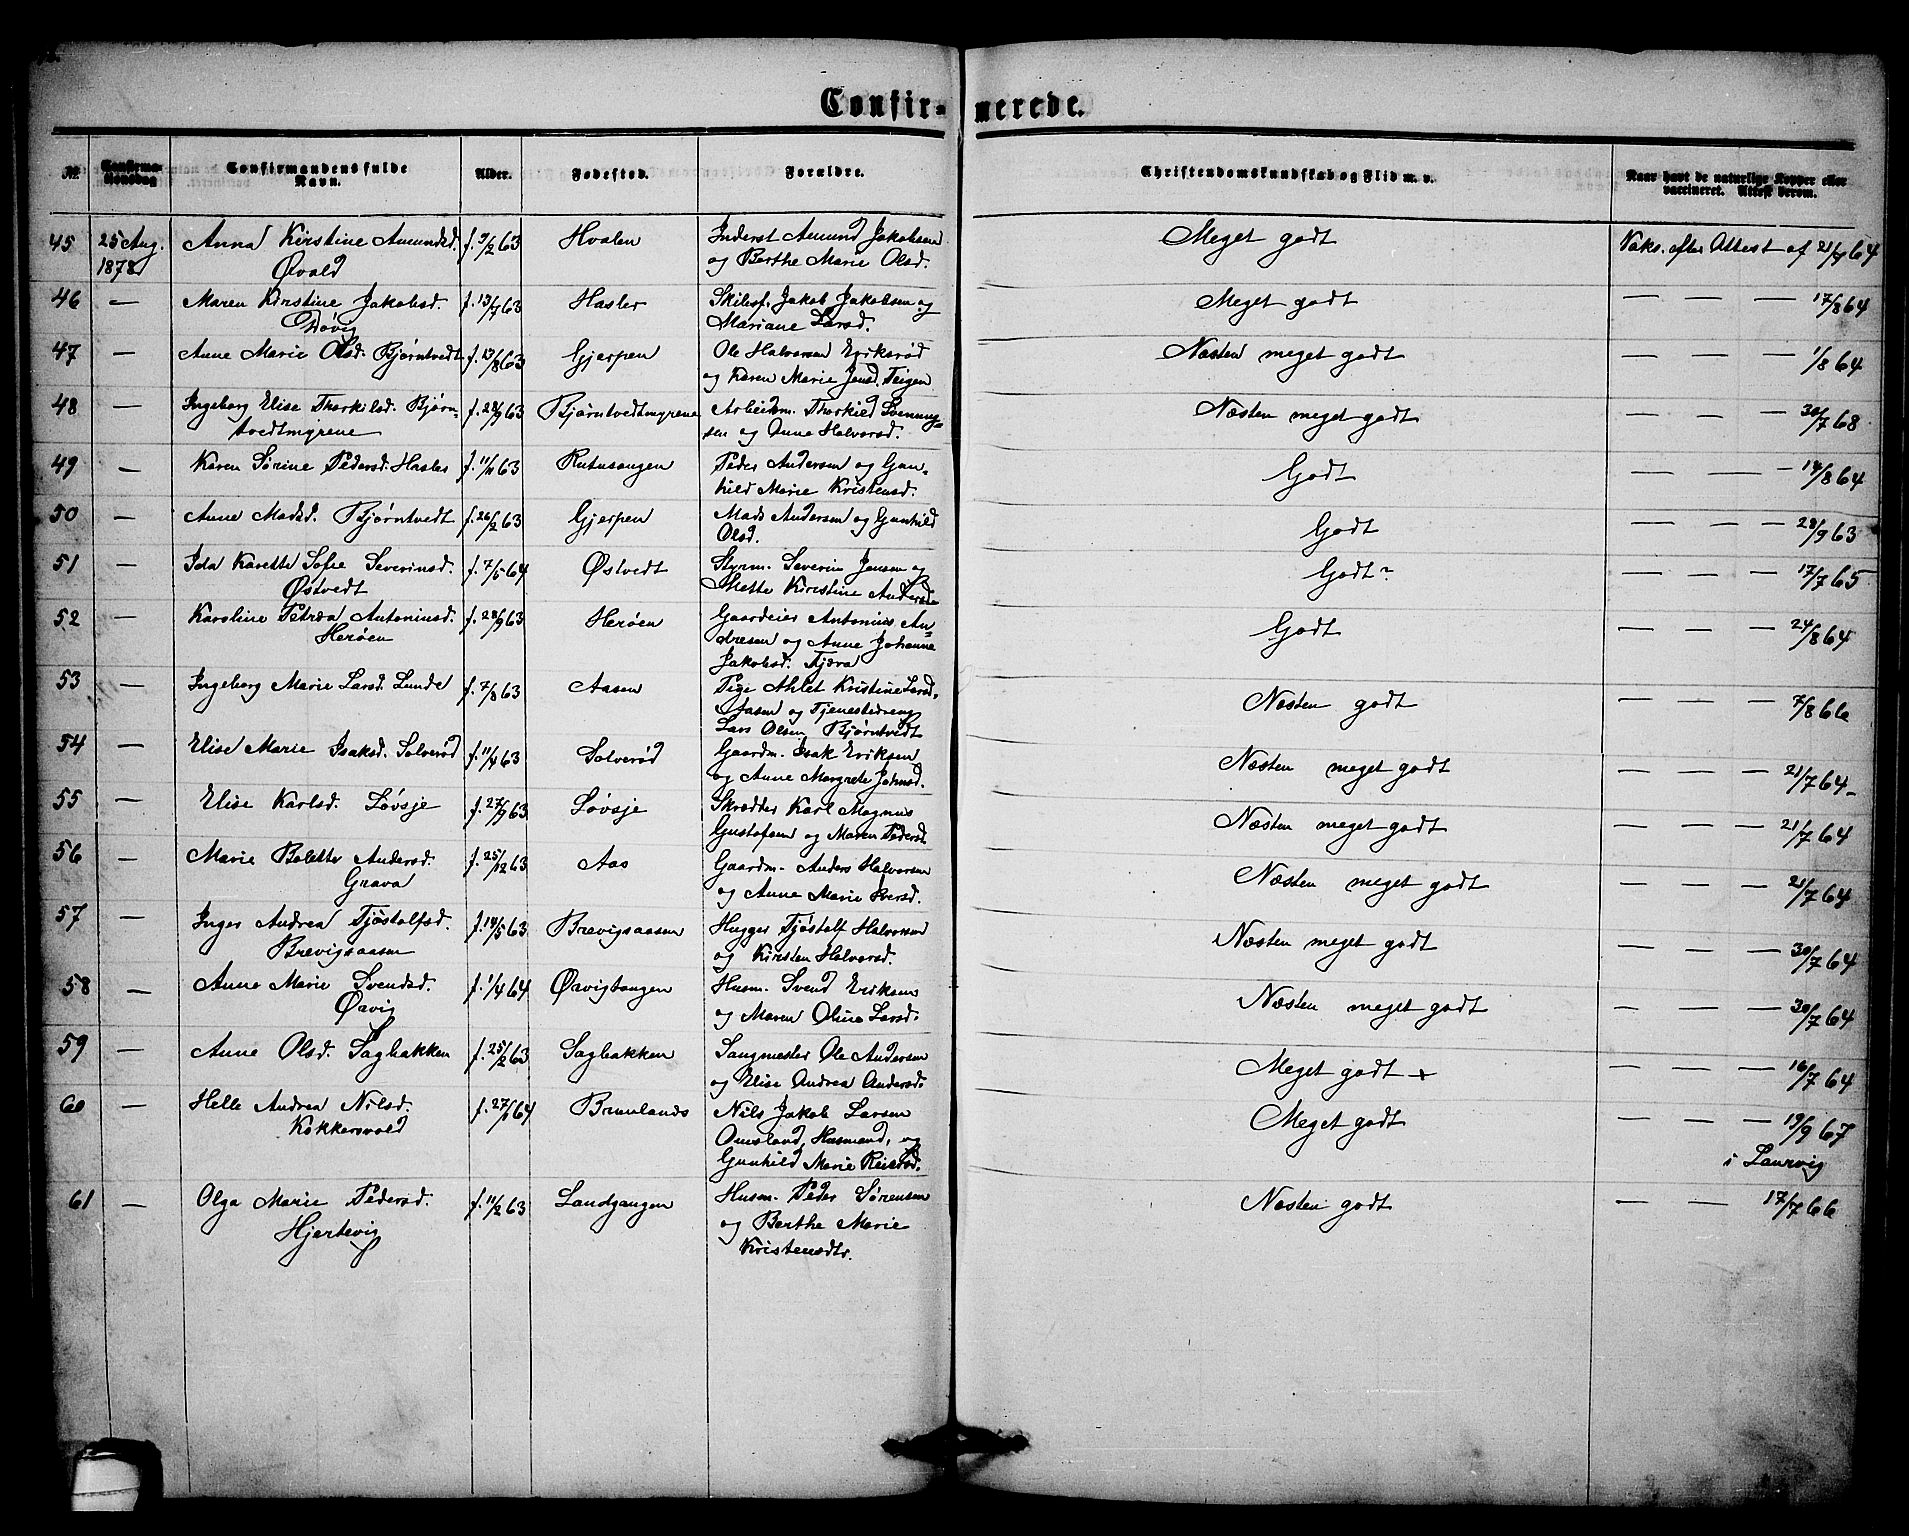 Confir- merede.
No. Confirmationsdag Confirmandens fulde Navn. Alder. Fødested. Forældre. Christendomskundskab og Flid m. v. Naar havt de naturlige Kopper eller vaccineret. Attest derom.
45 25 Aug. Anna Kirstine Amundsd. f. 9/2 63 Hvalen Inderst Amund Jakobsen Meget godt Vaks. efter Attest af 21/7 64
1878 Øvald og Berthe Marie Olsd.
46 — Maren Kirstine Jakobsd. f. 13/7 63 Hasler Skibsf. Jakob Jakobsen og Meget godt — — — 17/8 64
Døvig Mariane Larsd.
47 — Anne Marie Olsd. Bjørntvedt f. 13/8 63 Gjerpen Ole Halvorsen Eriksrød Næsten meget godt — — — 1/8 64
og Karen Marie Jensd. Teigen
48 — Ingeborg Elise Thorkilsd. Bjørn- f. 28/9 63 Bjørntvedtmyrene Arbeidsm. Thorkild Svennug- Næsten meget godt — — — 30/7 68
tvedtmyrene sen og Anne Halvorsd.
49 — Karen Sørine Pedersd. Hasler f. 11/11 63 Peder Andersen og Gun- Godt — — — 14/8 64
hild Marie Kristensd.
50 — Anne Madsd. Bjørntvedt f. 26/2 63 Gjerpen Mads Andersen og Gunhild Godt — — — 28/9 63
Olsd.
51 — Ida Karette Sofie Severinsd. f. 7/5 64 Østvedt Styrm. Severin Jensen og Godt — — — 17/7 65
Østvedt Mette Kirstine Andersd.
52 — Karoline Petrea Antoniusd. f. 28/9 63 Herøen Gaardeier Antonius An- Godt — — — 24/8 64
Herøen dresen og Anne Johanne
Jakobsd. Fjæra
53 — Ingeborg Marie Larsd. Lunde f. 7/8 63 Aasen Pige Ahlet Kristine Larsd. Næsten godt — — — 7/8 66
Aasen og Tjenestedreng
Lars Olsen Bjørntvedt
54 — Elise Marie Isaksd. Solverød f. 11/4 63 Solverød Gaardm. Isak Eriksen Næsten meget godt — — — 21/7 64
og Anne Margrete Johnsd.
55 — Elise Karlsd. Løvsje f. 27/9 63 Løvsje Skrædder Karl Magnus Næsten meget godt — — — 21/7 64
Gustafsen og Maren Pedersd.
56 — Marie Bolette Andersd. f. 25/12 63 Aas Gaardm. Anders Halvorsen Næsten meget godt — — — 21/7 64
Grava og Anne Marie Iversd.
57 — Inger Andrea Tjøstolfsd. f. 14/5 63 Brevigsaasen Hugger Tjøstolf Halvorsen Næsten meget godt — — — 30/7 64
Brevigsaasen og Kirsten Halvorsd.
58 — Anne Marie Svendsd. f. 1/4 64 Øravigtangen Husm. Svend Eriksen Næsten meget godt — — — 30/7 64
Øravig og Maren Oline Larsd.
59 — Anne Olsd. Sagbakken f. 25/2 63 Sagbakken Saugmester Ole Andersen Meget godt — — — 16/7 64
og Elise Andrea Andersd.
60 — Helle Andrea Nilsd. f. 27/1 64 Brunlands Nils Jakob Larsen Meget godt — — — 19/9 67
Kokkersvold Omsland, Husmand, og i Laurvig
Gunhild Marie Reiersd.
61 — Olga Marie Pedersd. f. 11/2 63 Landgangen Husm. Peder Sørensen Næsten godt — — 17/7 66
Hjertevig og Berthe Marie
Kristensdtr.